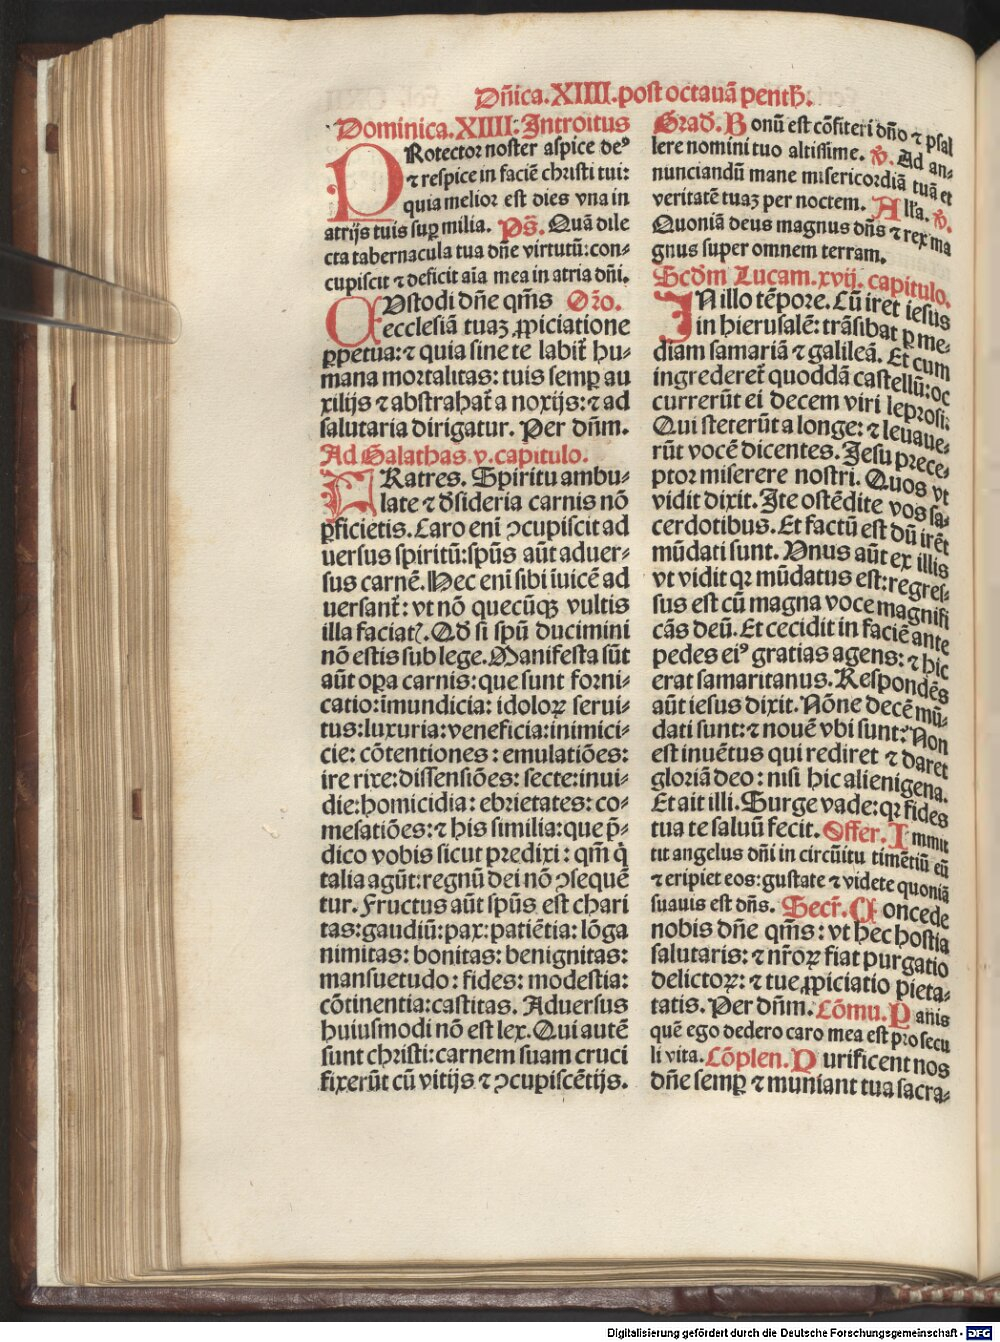 Dñica.XIIII.post octauã penth̃.
Dominica.XIIII: Introitus
PRotector noster aspice deꝰ
⁊ respice in faciẽ christi tui:
quia melior est dies vna in
atrijs tuis sup̱ milia. Ps̃. Quã dile
cta tabernacula tua dñe virtutũ: con-
cupiscit ⁊ deficit aĩa mea in atria dñi.
CVstodi dñe qm̃s Oro.
ecclesiã tuaꝫ ꝓpiciatione
ꝑpetua: ⁊ quia sine te labit̃ hu-
mana mortalitas: tuis semꝑ au
xilijs ⁊ abstrahat̃ a noxijs: ⁊ ad
salutaria dirigatur. Per dñm.
Ad Galathas.v.capitulo.
FRatres. Spiritu ambu-
late ⁊ d̃sideria carnis nõ
ꝑficietis. Caro enĩ ↄcupiscit ad
uersus spiritũ: spũs aũt aduer-
sus carnẽ. Hec enĩ sibi ĩuicẽ ad
uersant̃: vt nõ quecũqꝫ vultis
illa faciat̉. Qd̃ si spũ ducimini
nõ estis sub lege. Manifesta sũt
aũt oꝑa carnis: que sunt forni-
catio: ĩmundicia: idoloꝝ serui-
tus: luxuria: veneficia: inimici-
cie: cõtentiones: emulatiões:
ire rixe: dissensiões: secte: inui-
die: homicidia: ebrietates: co-
mesatiões: ⁊ his similia: que p̃-
dico vobis sicut predixi: qm̃ q̇
talia agũt: regnũ dei nõ ↄsequẽ
tur. Fructus aũt spũs est chari
tas: gaudiũ: pax: patiẽtia: lõga
nimitas: bonitas: benignitas:
mansuetudo: fides: modestia:
cõtinentia: castitas. Aduersus
huiusmodi nõ est lex. Qui autẽ
sunt christi: carnem suam cruci
fixerũt cũ vitijs ⁊ ↄcupiscẽtijs.
Grad̃. Bonũ est cõfiteri dño ⁊ psal
lere nomini tuo altissime. ℣. Ad an-
nunciandũ mane misericordiã tuã et
veritatẽ tuaꝫ per noctem. Allã. ℣.
Quoniã deus magnus dñs ⁊ rex ma
gnus super omnem terram.
Scd̃m Lucam.xvij.capitulo.
IN illo tẽpore. Cũ iret iesus
in hierusalẽ: trãsibat ꝑ me-
diam samariã ⁊ galileã. Et cum
ingrederet̃ quoddã castellũ: oc
currerũt ei decem viri leprosi:
Qui steterũt a longe: ⁊ leuaue-
rũt vocẽ dicentes. Jesu prece-
ptor miserere nostri. Quos vt
vidit dixit. Ite ostẽdite vos sa-
cerdotibus. Et factũ est dũ irẽt
mũdati sunt. Vnus aũt ex illis
vt vidit qꝛ mũdatus est: regres-
sus est cũ magna voce magnifi
cãs deũ. Et cecidit in faciẽ ante
pedes eiꝰ gratias agens: ⁊ hic
erat samaritanus. Respondẽs
aũt iesus dixit. Nõne decẽ mũ-
dati sunt: ⁊ nouẽ vbi sunt: Non
est inuẽtus qui rediret ⁊ daret
gloriã deo: nisi hic alienigena.
Et ait illi. Surge vade: qꝛ fides
tua te saluũ fecit. Offer. Immit
tit angelus dñi in circũitu timẽtiũ eũ
⁊ eripiet eos: gustate ⁊ videte quoniã
suauis est dñs. Secr̃. Concede
nobis dñe qm̃s: vt hec hostia
salutaris: ⁊ nr̃oꝝ fiat purgatio
delictoꝝ: ⁊ tue ꝓpiciatio pieta-
tatis. Per dñm. Cõmu. Panis
quẽ ego dedero caro mea est pro secu
li vita. Cõplen. Purificent nos
dñe semꝑ ⁊ muniant tua sacra-
Digitalisierung gefördert durch die Deutsche Forschungsgemeinschaft - DFG